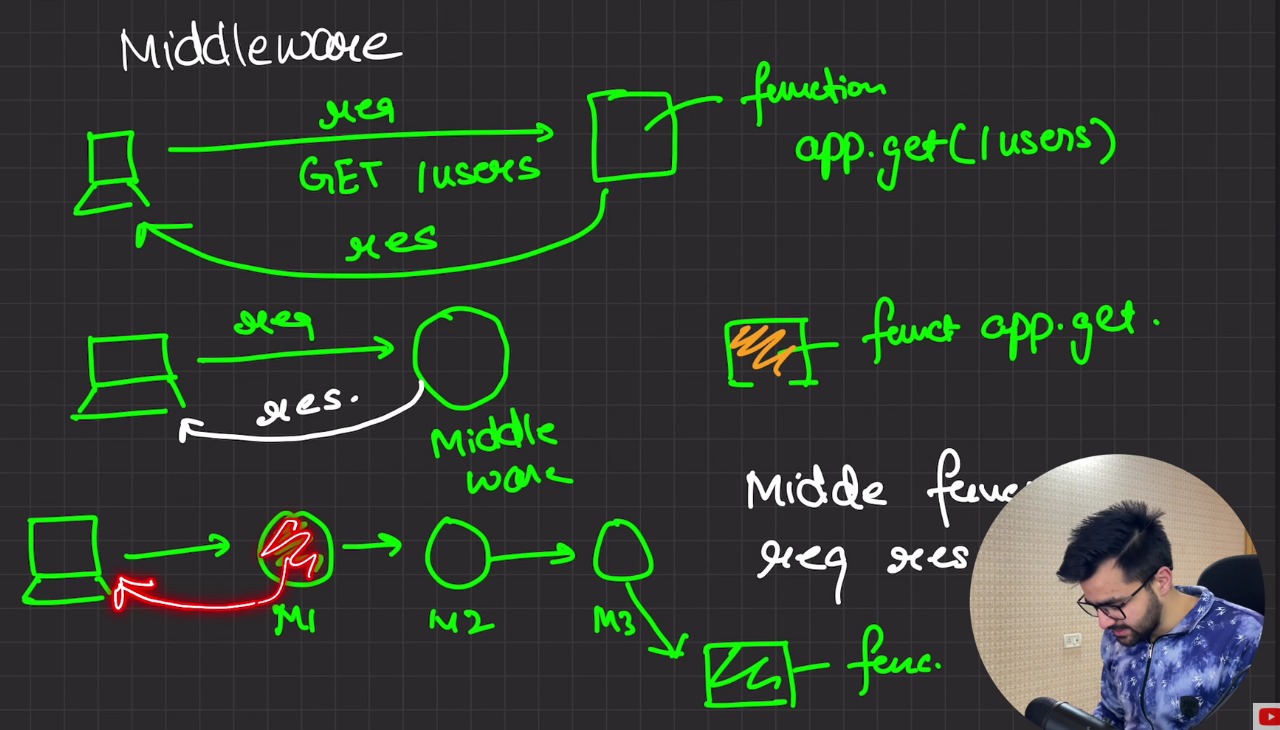 Middleware
req
GET /users
res
function
app.get(/users)
req
res.
Middle
ware
funct app.get.
Midde func
req res
M1
M2
M3
func.